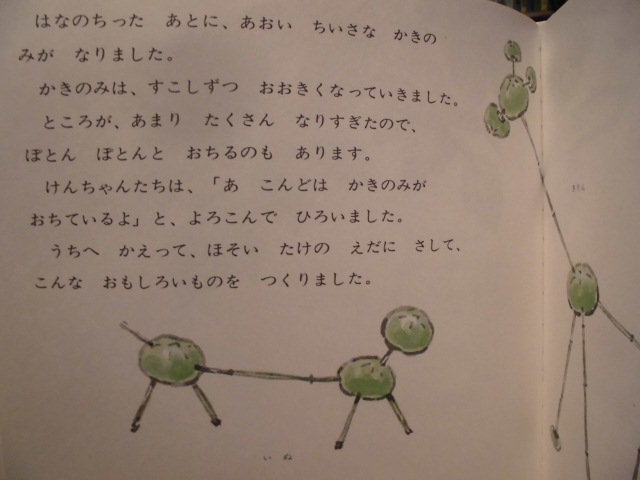 はなのちった　あとに、あおい　ちいさな　かきの
みが　なりました。
かきのみは、すこしずつ　おおきくなっていきました。
ところが、あまり　たくさん　なりすぎたので、
ぽとん　ぽとんと　おちるのも　あります。
けんちゃんたちは、「あ　こんどは　かきのみが
おちているよ」と、よろこんで　ひろいました。
うちへ　かえって、ほそい　たけの　えだに　さして、
こんな　おもしろいものを　つくりました。
いぬ